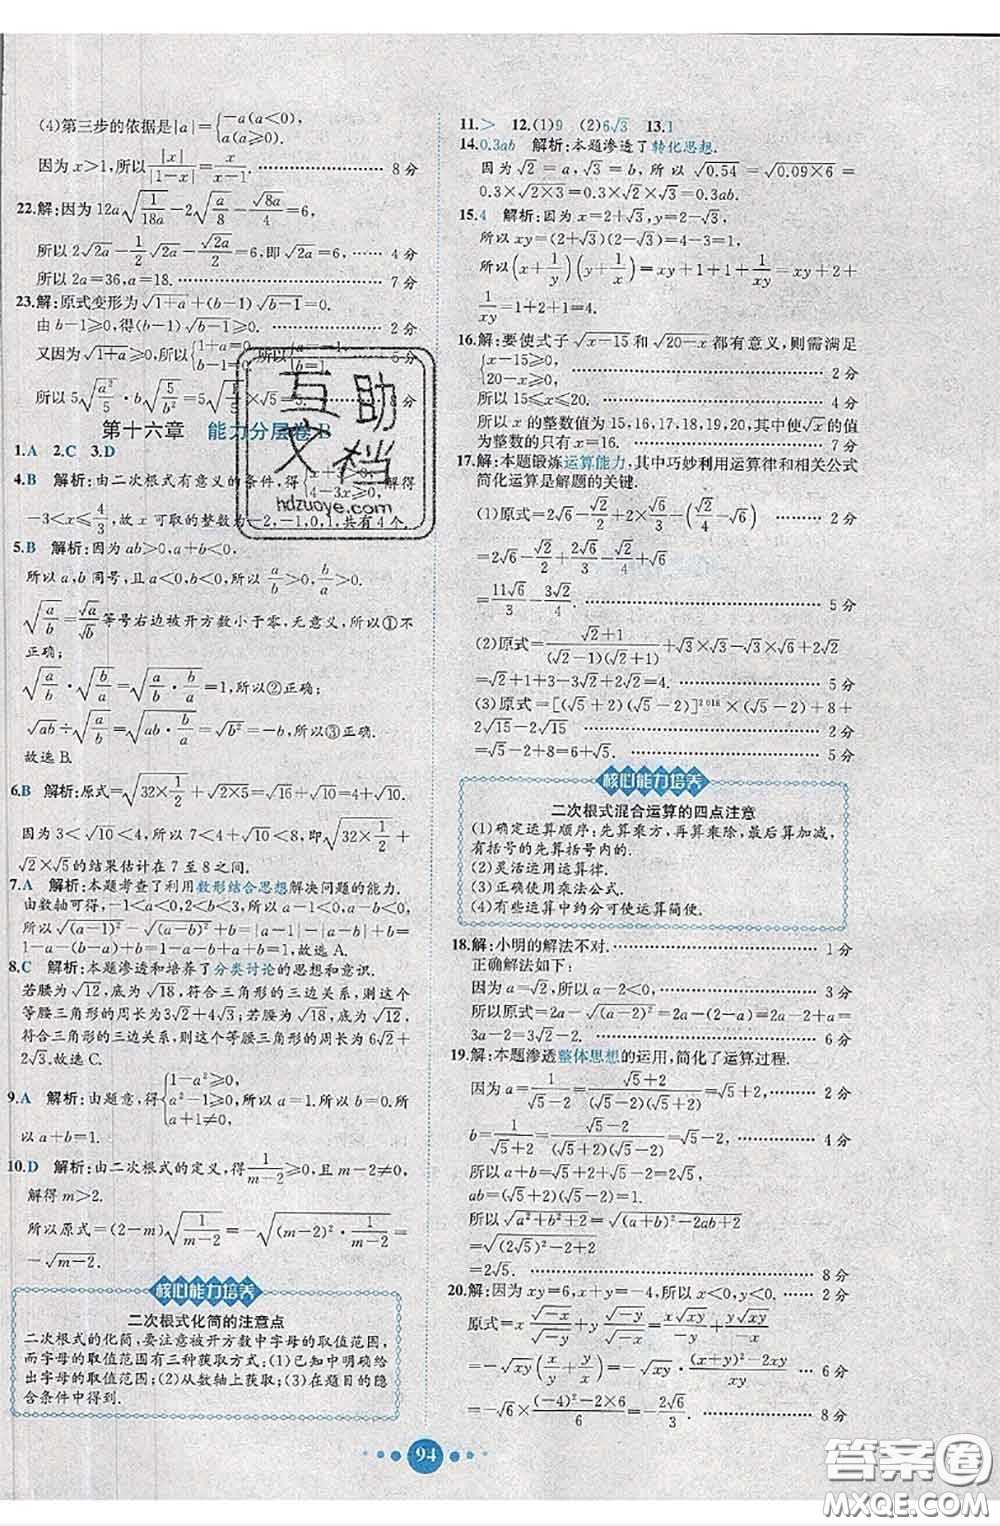 (4)第三步的依据是|a|={-a(a<0), a(a≥0).
因为x>1,所以|x|/|1-x|=x/(x-1).……8分
22.解:因为12a√(1/(18a))-2√(a/8)-√(8a)/4=6,
所以2√(2a)-(1/2)√(2a)-√(2a)/2=6,即√(2a)=6,……4分
所以2a=36,a=18.……7分
23.解:原式变形为√(1+a)+(b-1)√(b-1)=0.
由b-1≥0,得(b-1)√(b-1)≥0.……2分
又因为√(1+a)≥0,所以{1+a=0, b-1=0.所以{a=-1, b=1.……5分
所以5√(a²/5)·b√(5/b²)
第十六章 能力分层卷B
1.A 2.C 3.D
4.B 解析:由二次根式有意义的条件,得{x+3>0, 4-3x≥0,解得
-3<x≤4/3,故x可取的整数为-2,-1,0,1,共有4个.
5.B 解析:因为ab>0,a+b<0,
所以a,b同号,且a<0,b<0,所以a/b>0,b/a>0.
√(a/b)=√a/√b等号右边被开方数小于零,无意义,所以①不
正确;
√(a/b)·√(b/a)=√(a/b·b/a)=√1=1,所以②正确;
√(ab)÷√(a/b)=√(ab·b/a)=√(b²)=-b,所以③正确.
故选B.
6.B 解析:原式=√(32×1/2)+√(2×5)=√16+√10=4+√10.
因为3<√10<4,所以7<4+√10<8,即√(32×1/2)+
√2×√5的结果估计在7至8之间.
7.A 解析:本题考查了利用数形结合思想解决问题的能力.
由数轴可得,-1<a<0,2<b<3,所以a-1<0,a-b<0,
所以√((a-1)²)-√((a-b)²)+b=|a-1|-|a-b|+b=
1-a-(b-a)+b=1-a-b+a+b=1,故选A.
8.C 解析:本题渗透和培养了分类讨论的思想和意识.
若腰为√12,底为√18,符合三角形的三边关系,则这个
等腰三角形的周长为3√2+4√3;若腰为√18,底为√12,
符合三角形的三边关系,则这个等腰三角形的周长为6√2+
2√3.故选C.
9.A 解析:由题意,得{1-a²≥0, a²-1≥0, a+1≠0,所以a=1.所以b=0.所
以a+b=1.
10.D 解析:由二次根式的定义,得1/(m-2)≥0,且m-2≠0,
解得m>2.
所以原式=(2-m)√(1/(m-2))=-√((m-2)²·1/(m-2))=
-√(m-2).
核心能力培养
二次根式化简的注意点
二次根式的化简,要注意被开方数中字母的取值范围,
而字母的取值范围有三种获取方式:(1)已知中明确给
出字母的取值范围;(2)从数轴上获取;(3)在题目的隐
含条件中得到.
11.> 12.(1)9 (2)6√3 13.1
14.0.3ab 解析:本题渗透了转化思想.
因为√2=a,√3=b,所以√0.54=√(0.09×6)=
0.3×√(2×3)=0.3×√2×√3=0.3ab.
15.4 解析:因为x=2+√3,y=2-√3,
所以xy=(2+√3)(2-√3)=4-3=1,
所以(x+1/y)(y+1/x)=xy+1+1+1/(xy)=xy+2+
1/(xy)=1+2+1=4.
16.解:要使式子√(x-15)和√(20-x)都有意义,则需满足
{x-15≥0, 20-x≥0.……2分
所以15≤x≤20.……4分
所以x的整数值为15,16,17,18,19,20,其中算术平方根
为整数的只有x=16.……7分
17.解:本题锻炼运算能力,其中巧妙利用运算律和相关公式
简化运算是解题的关键.
(1)原式=2√6-√2/2+2×√6/3-(√2/4-√6)……2分
=2√6-√2/2+2√6/3-√2/4+√6
=11√6/3-3√2/4.……5分
(2)原式=(√2+1)/((√2-1)(√2+1))+√3×√3-√3×√6+2√2
=√2+1+3-3√2+2√2=4.……5分
(3)原式=[(√5+2)(√5-2)]²⁰¹⁸×(√5-2)+8+
2√15-2√15……2分
=√5-2+8=6+√5.……5分
核心能力培养
二次根式混合运算的四点注意
(1)确定运算顺序:先算乘方,再算乘除,最后算加减,
有括号的先算括号内的.
(2)灵活运用运算律.
(3)正确使用乘法公式.
(4)有些运算中约分可使运算简便.
18.解:小明的解法不对.……1分
正确解法如下:
因为a=√2,所以a-2<0.……3分
所以原式=2a-√((a-2)²)=2a-(2-a)=2a-2+a=
3a-2=3√2-2.……6分
19.解:本题渗透整体思想的运用,简化了运算过程.
因为a=1/(√5-2)=(√5+2)/((√5-2)(√5+2))=√5+2,……2分
b=1/(√5+2)=(√5-2)/((√5+2)(√5-2))=√5-2,……4分
所以a+b=√5+2+√5-2=2√5,
ab=(√5+2)(√5-2)=1.……6分
所以√(a²+b²+2)=√((a+b)²-2ab+2)
=√((2√5)²-2×1+2)
=2√5.……8分
20.解:因为xy=6,x+y=-4,所以x<0,y<0.……2分
原式=x√(-y)/√(-x)+y√(-x)/√(-y)=x√(xy)/(-x)+y√(xy)/(-y)……4分
=-√(xy)(x/y+y/x)=-√(xy)·((x+y)²-2xy)/(xy)……6分
=-√6×((-4)²-2×6)/6=-2√6/3.……8分
94
互助
文档
hdzuoye.com
答案圈
MXQE.COM